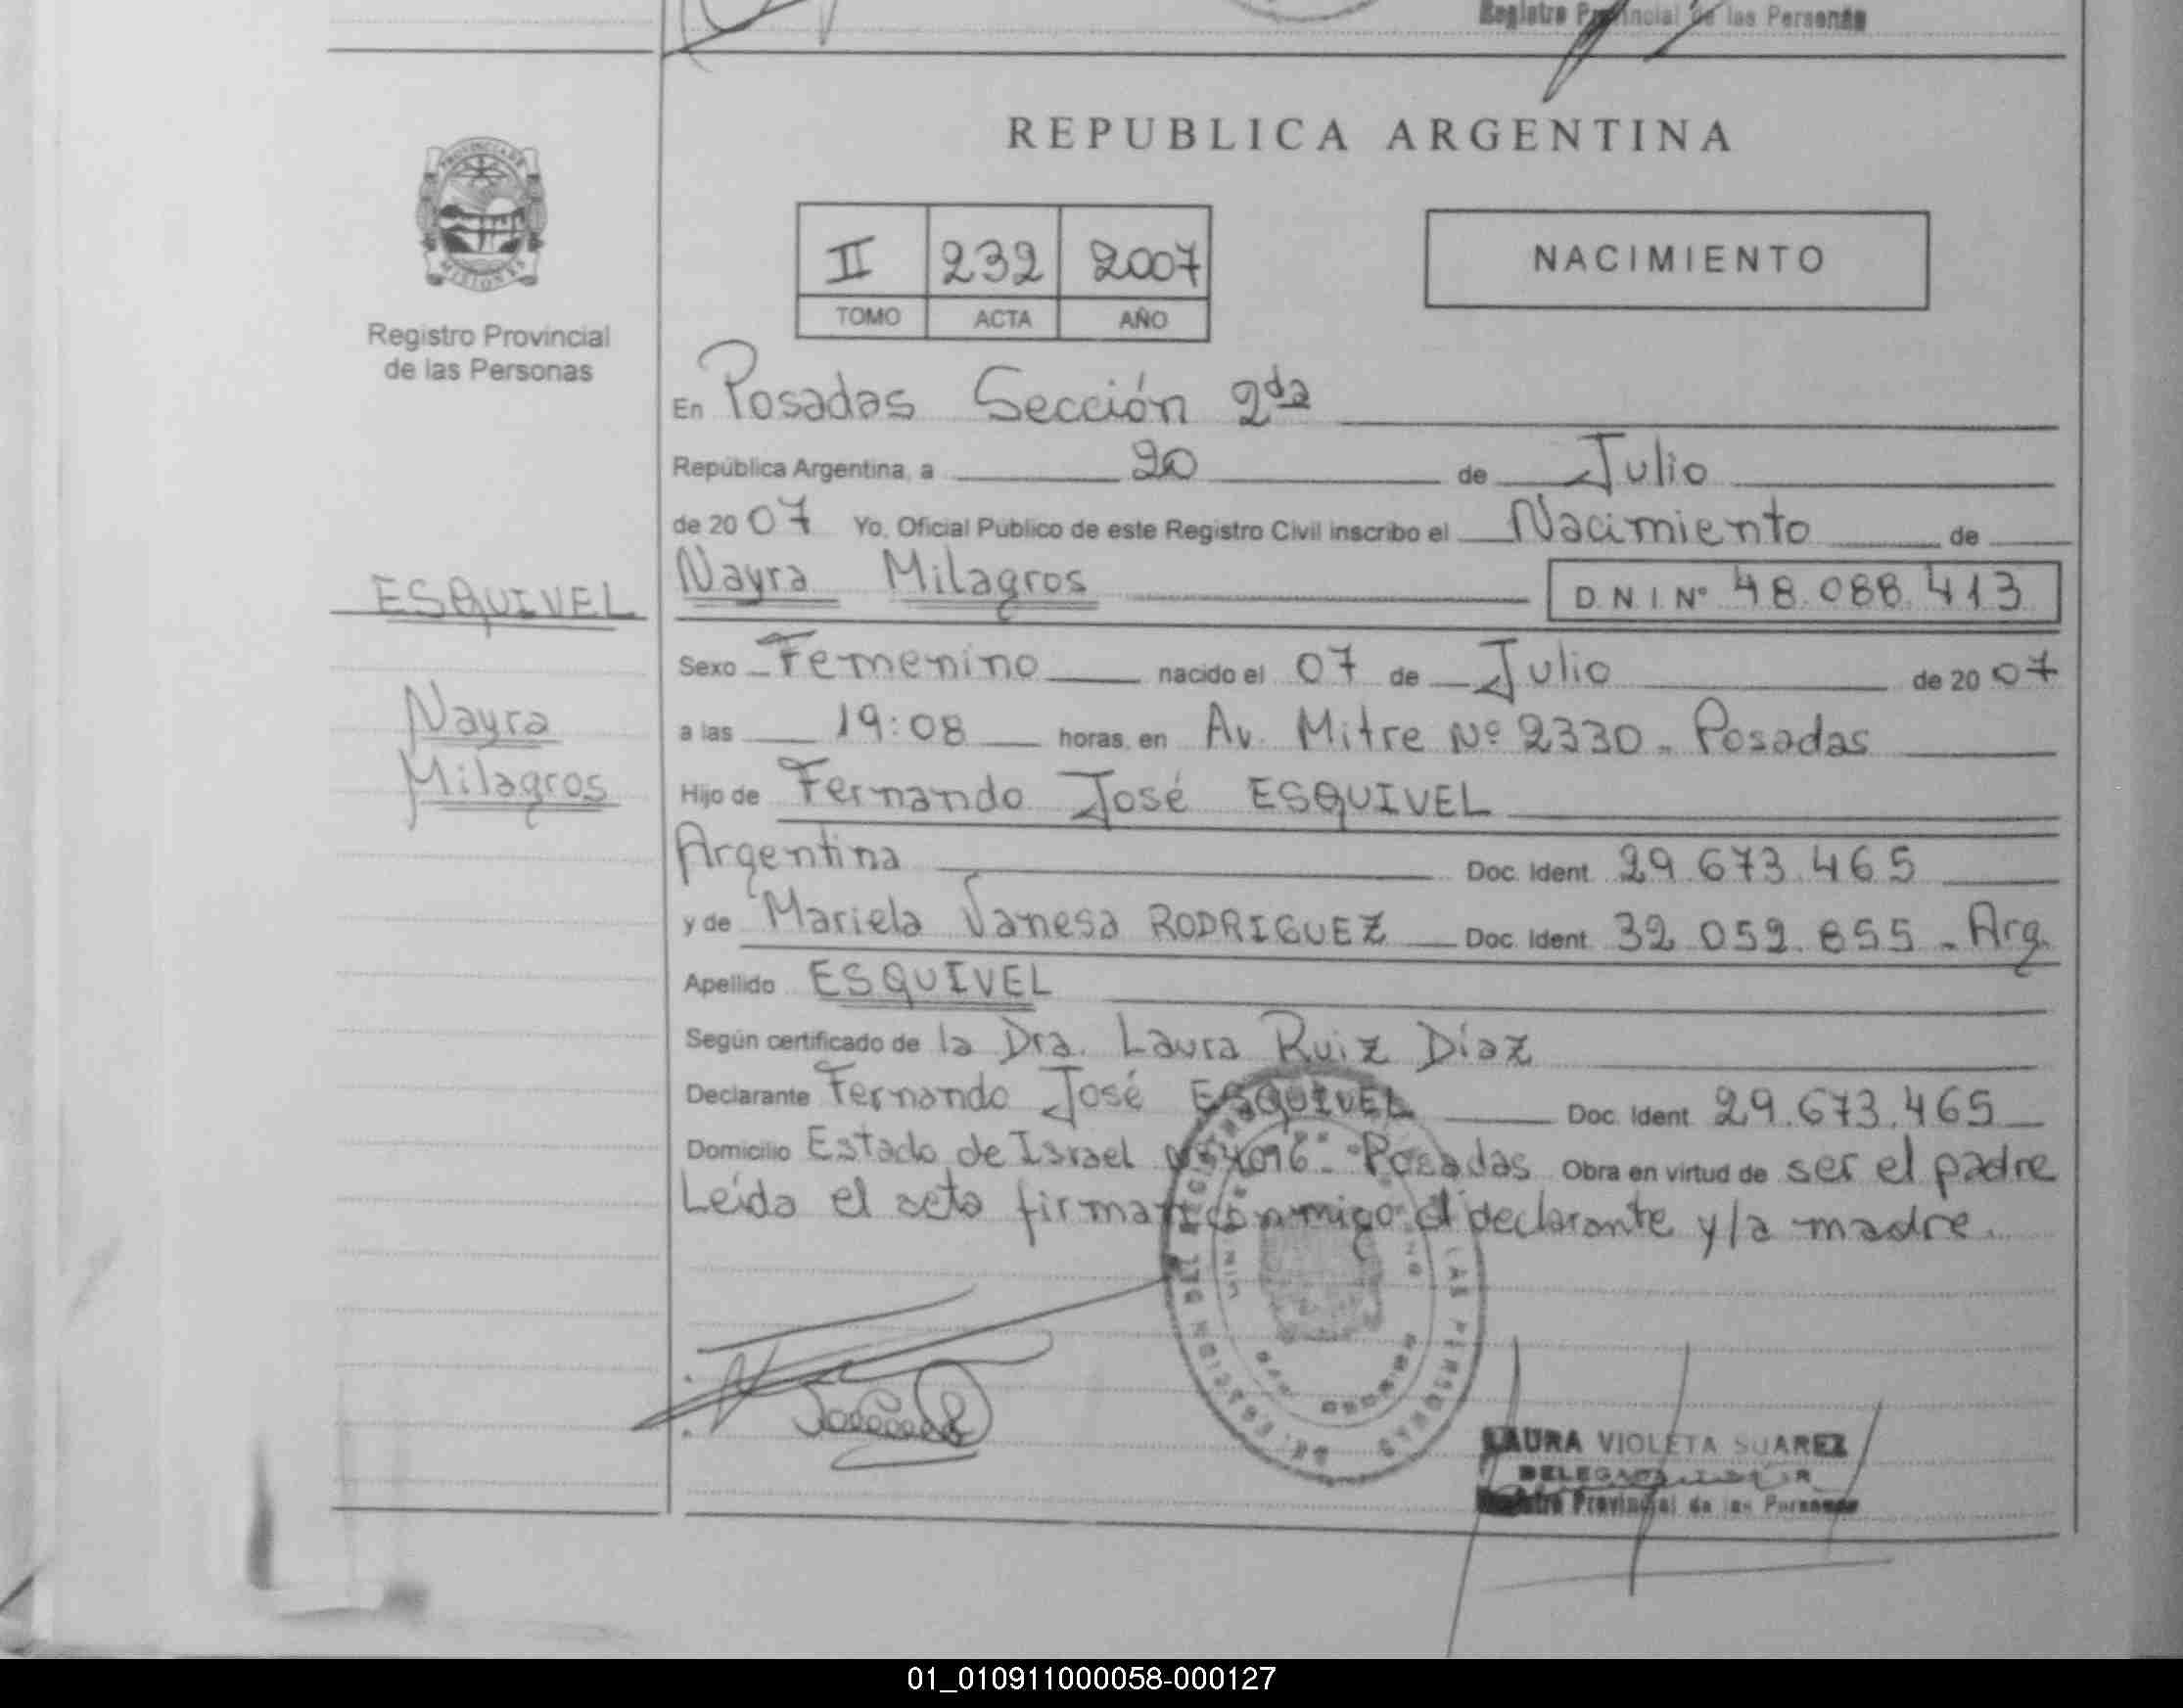 Registro Provincial de las Personas
REPUBLICA ARGENTINA
PROVINCIA DE
MISIONES
Registro Provincial
de las Personas
II 232 2007
TOMO ACTA AÑO
NACIMIENTO
En Posadas Sección 2da
República Argentina, a 20 de Julio
de 2007 Yo, Oficial Publico de este Registro Civil inscribo el Nacimiento de
ESQUIVEL
Nayra Milagros D.N.I. Nº 48.088.413
Sexo Femenino nacido el 07 de Julio de 2007
Nayra
Milagros
a las 19:08 horas, en Av. Mitre Nº 2330 - Posadas
Hijo de Fernando José ESQUIVEL
Argentina Doc. Ident. 29.673.465
y de Mariela Vanesa RODRIGUEZ Doc. Ident. 32.059.855 - Arg.
Apellido ESQUIVEL
Según certificado de la Dra. Laura Ruiz Díaz
Declarante Fernando José ESQUIVEL Doc. Ident. 29.673.465
Domicilio Estado de Israel Posadas Obra en virtud de ser el padre
Leída el acta firman conmigo el declarante y/a madre.
LAS PERSONAS
LAURA VIOLETA SUAREZ
Registro Provincial de las Personas
01_010911000058-000127